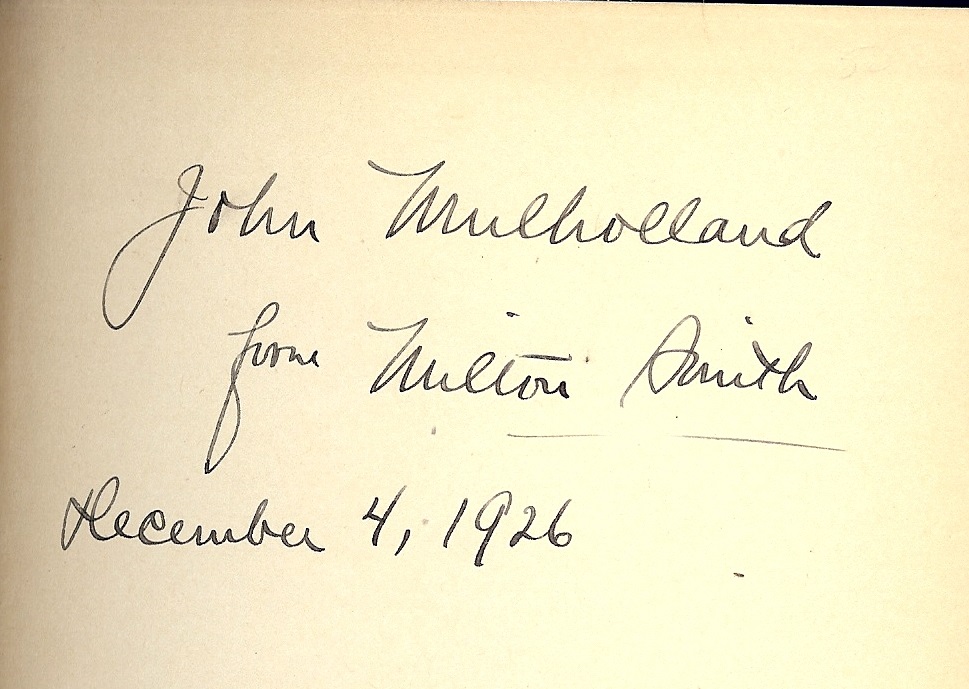 John Mulholland
from Milton Smith
December 4, 1926